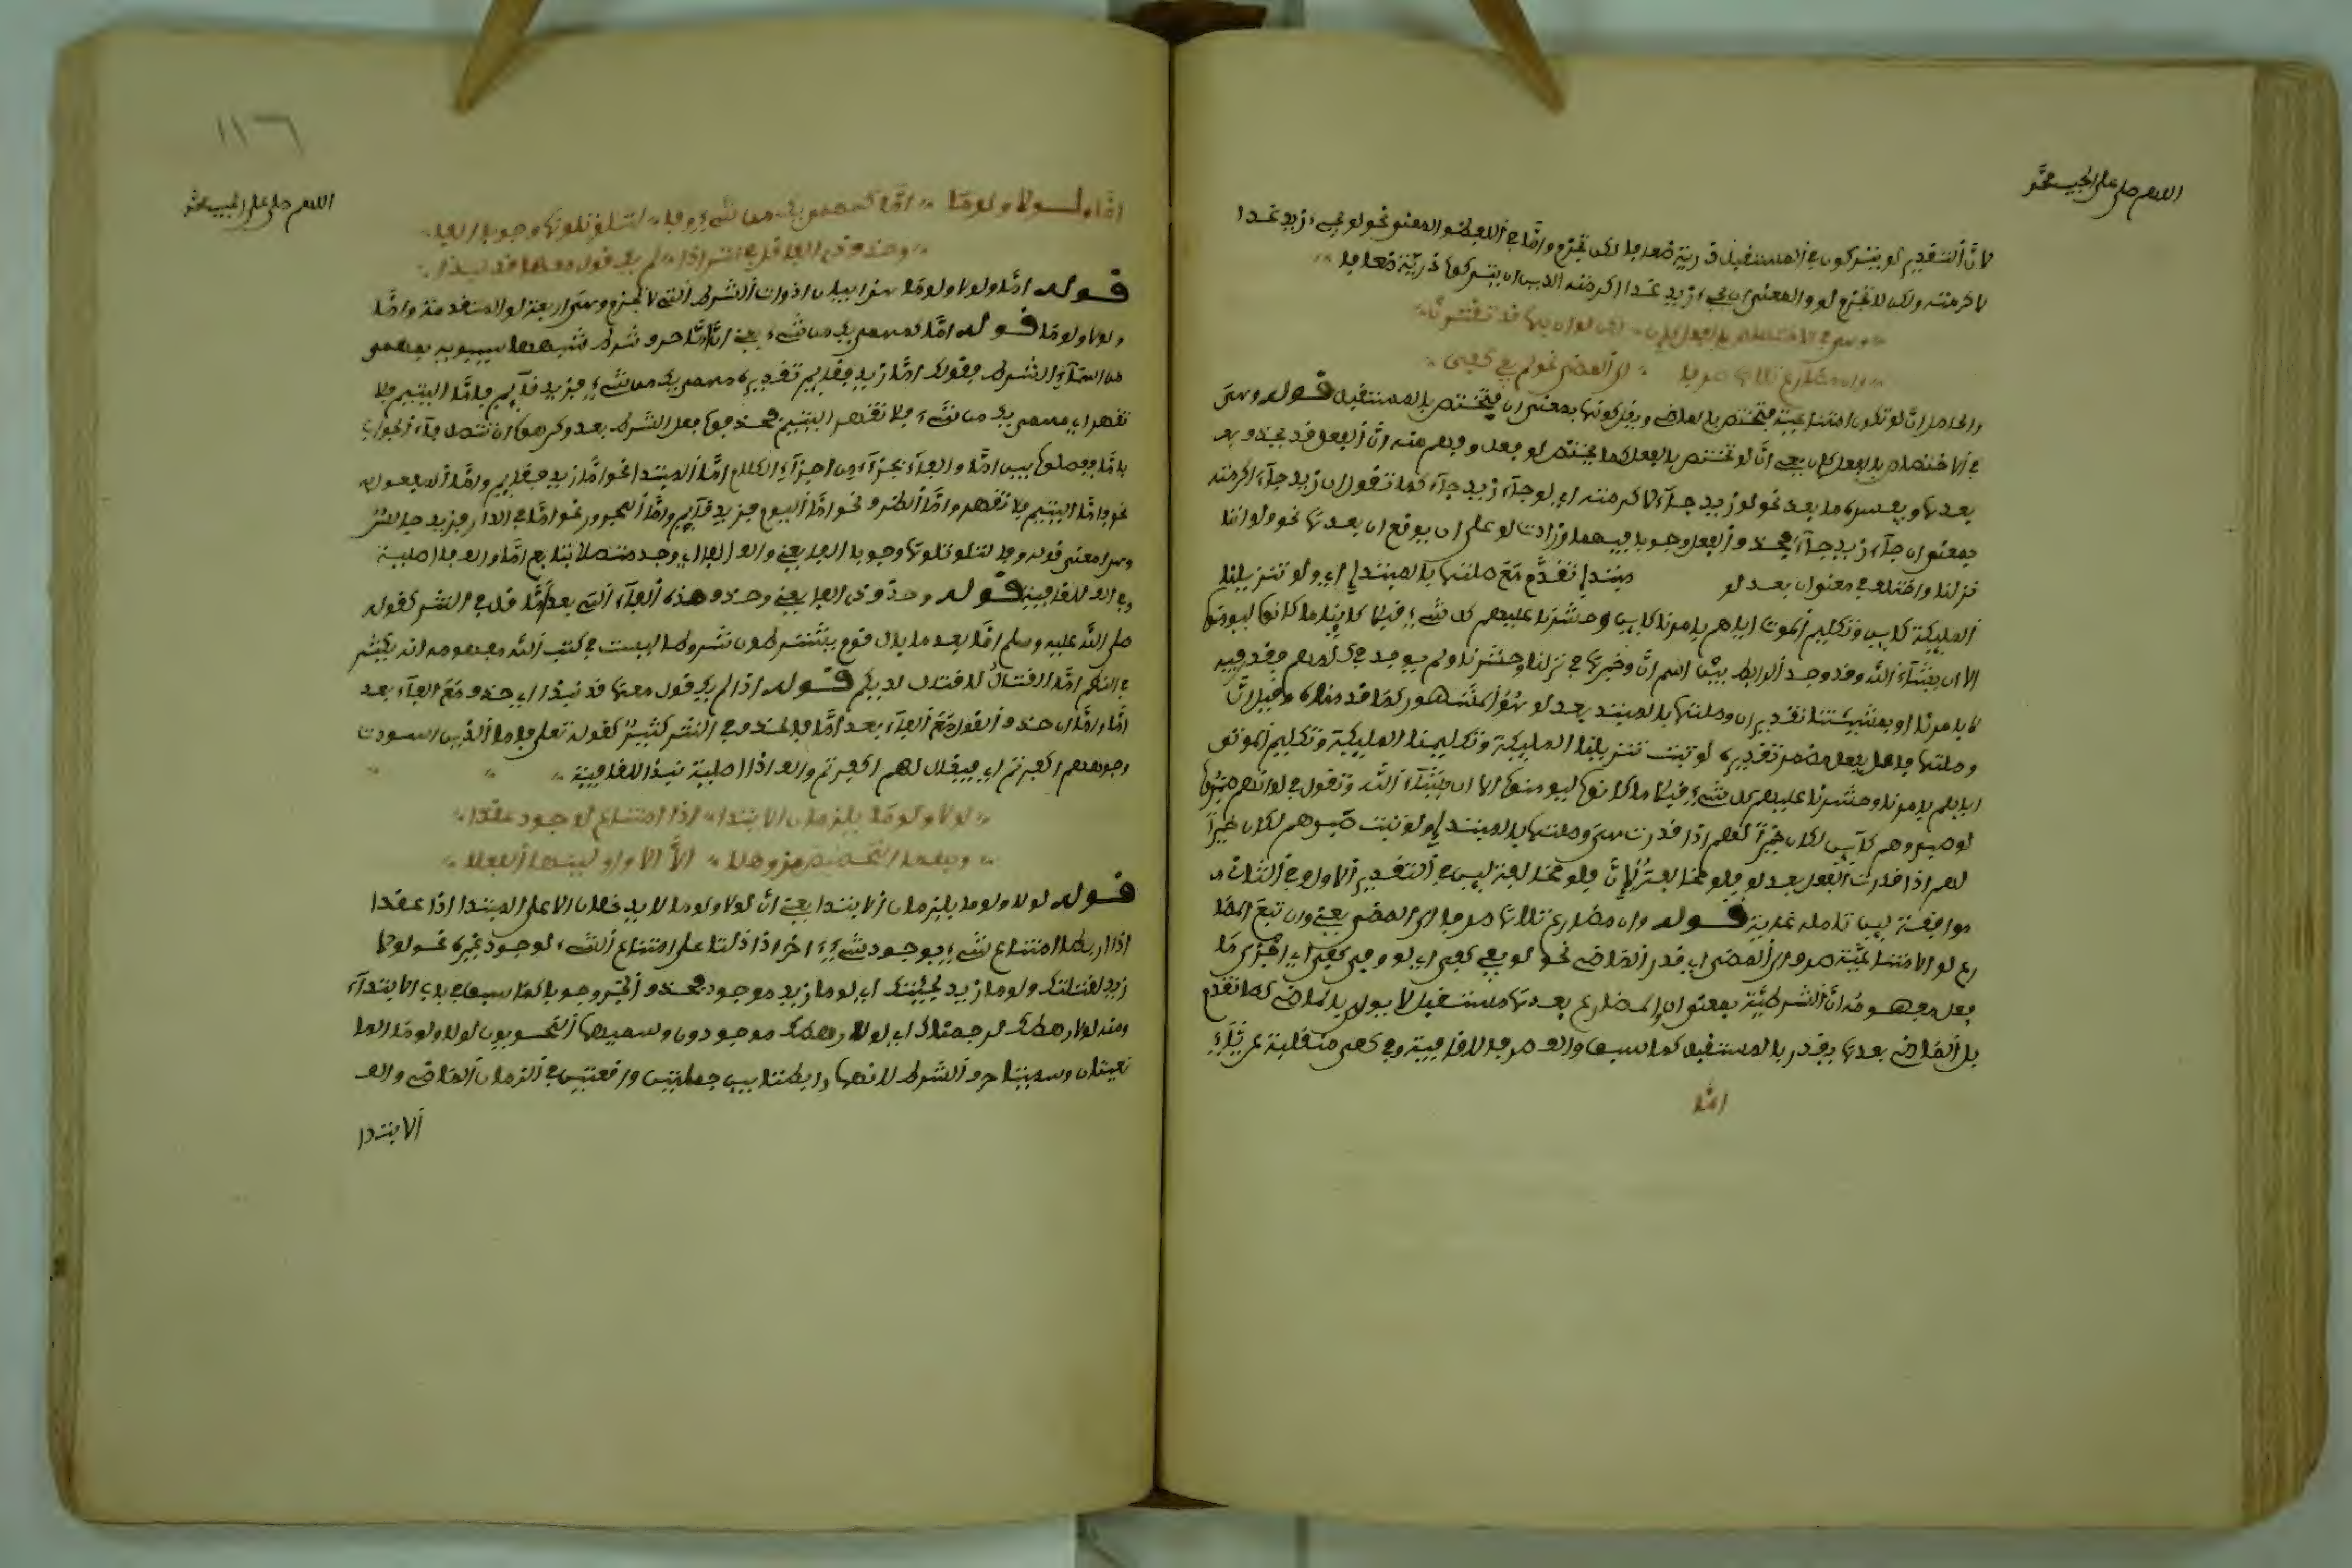 اللهم صل على الحبيب محمد
لانّ التقدير لو يتركون في المستقبل ذرية ضعافا لكن تجزم وامّا في اللفظ والمعنى نحو لو يجيء زيد غدا
لاكرمته ولكن لا تجزم لو والمعنى ان يجيء زيد غدا اكرمته الذين ان يتركوا ذرية ضعافا
وهي في الاختصاص بالفعل كان لكن لو انّ بها قد تقترن
وان مضارع تلاها صرفا الى المضي نحو لو يفي كفى
والحاصل انّ لو تكون امتناعية فتختص بالماضي ويقل كونها بمعنى ان فتختص بالمستقبل قوله وهي
في الاختصاص بالفعل كان يعني انّ لو تختص بالفعل كما يختص لو بفعل وفهم منه انّ الفعل قد يحذف
بعدها ويفسره ما بعد نحو لو زيد جاء لاكرمته اي لو جاء زيد جاء كما تقول ان زيد جاء اكرمته
بمعنى ان جاء زيد جاء فحذف الفعل وجوبا فيهما وزادت لو على ان بوقوع ان بعدها نحو ولو اننا
نزلنا واختلف في معنى ان بعد لو مبتدا تقدّم مع صلتها بالمبتدا اي ولو تنزيلنا
الملايكة كاين وتكليم الموتى اياهم بامرنا كاين وحشرنا عليهم كل شيء قبلا كاينا ما كانوا ليومنوا
الا ان يشاء الله وقد وجد الرابط بين اسم انّ وخبرها في نزلنا وحشرنا ولم يوجد في كلمهم فقدر فيه
كابامرنا او بمشيئتنا تقدير ان وصلتها بالمبتدا بعد لو هو المشهور كما قد مناه وقيل انّ
وصلتها فاعل بفعل مضمر تقديره لو ثبت تنزيلنا الملايكة وتكليمنا الملايكة وتكليم الموتى
اياهم بامرنا وحشرنا عليهم كل شيء قبلا ما كانوا ليومنوا الا ان يشاء الله وتقول في لو انهم صبروا
لو صبروهم كاين لكان خيرا لهم اذا قدرت هي وصلتها بالمبتدا ولو ثبت صبرهم لكان خيرا
لهم اذا قدرت الفعل بعد لو
موافقة ليس تامله غاية قوله وان مضارع تلاها صرفا الى المضي يعني وان تبع المضا
رع لو الامتناعية صرف الى المضي اي قدر الماضي نحو لو يفي كفى اي لو وفى كفى اي
فعل مفهومه انّ الشرطية بمعنى ان المضارع بعدها مستقبل لا يوول بالماضي كما تقدم
بل الماضي بعدها يقدر بالمستقبل كما سبق والف صرفا للاقافية وفي كفى منقلبة عن ياء
امّا
١١٦
اللهم صل على الحبيب محمد
امّا ولولا ولوما امّا كمهما يك من شيء وفا لتلو تلوها وجوبا الفا
وحذف ذي الفا قل في نثر اذا لم يك قول معها قد نبذا
قوله امّا ولولا ولوما هذا بيان ادوات الشرط التي لا تجزم وهي اربعة لو المتقدمة وامّا
ولولا ولوما قوله امّا كمهما يك من شيء يعني انّ امّا حرف شرط شبهها سيبويه بمهما
من اسماء الشرط فقولك امّا زيد فقايم تقديره مهما يك من شيء فزيد قايم فامّا اليتيم فلا
تقهر اي مهما يك من شيء فلا تقهر اليتيم فحذفوا فعل الشرط بعد وكرهوا ان تتصل فاء الجواب
بامّا ففصلوا بين امّا والفاء بجزء من اجزاء الكلام امّا المبتدا نحو امّا زيد فقايم وامّا المفعول به
نحو فامّا اليتيم فلا تقهر وامّا الظرف نحو امّا اليوم فزيد قايم وامّا المجرور نحو امّا في الدار فزيد جالس
وهذا معنى قوله وفا لتلو تلوها وجوبا الفا يعني والف الفا اي وجد متصلا بتابع امّا والف فا اصلية
وفي الف للقافية قوله وحذف ذي الفا يعني وحذف هذه الفاء التي بعد امّا قل في النثر كقوله
صلى الله عليه وسلم امّا بعد ما بال قوم يشترطون شروطا ليست في كتب الله مفهومه انه يكثر
في النظم امّا القتال لا قتال لديكم قوله اذا لم يك قول معها قد نبذا اي حذف مع الفاء بعد
امّا وامّا ان حذف القول مع الفاء بعد امّا فالحذف في النثر كثير كقوله تعلى فاما الذين اسودت
وجوههم اكفرتم اي فيقال لهم اكفرتم والف اذا اصلية نبذا للاقافية
لولا ولوما يلزمان الابتدا اذا امتناعا بوجود عقدا
وبهما التحضيض مز وهلا الاّ الا واولينها الفعلا
قوله لولا ولوما يلزمان الابتدا يعني انّ لولا ولوما لا يدخلان الا على المبتدا اذا عقدا
اذا ربطا امتناع شيء بوجود شيء اخر اذا دلتا على امتناع الشيء لوجود غيره نحو لولا
زيد لقتلتك ولوما زيد لجئتك اي لوما زيد موجود فحذف الخبر وجوبا كما سبق في باب الابتداء
ومنه لولا رهطك لرجمناك اي لولا رهطك موجودون وسميها النحويون لولا ولوما
نعيتان وسميتا حرف الشرط لانهما رابطتا بين جملتين واقعتين في الزمان الماضي والف
الابتدا